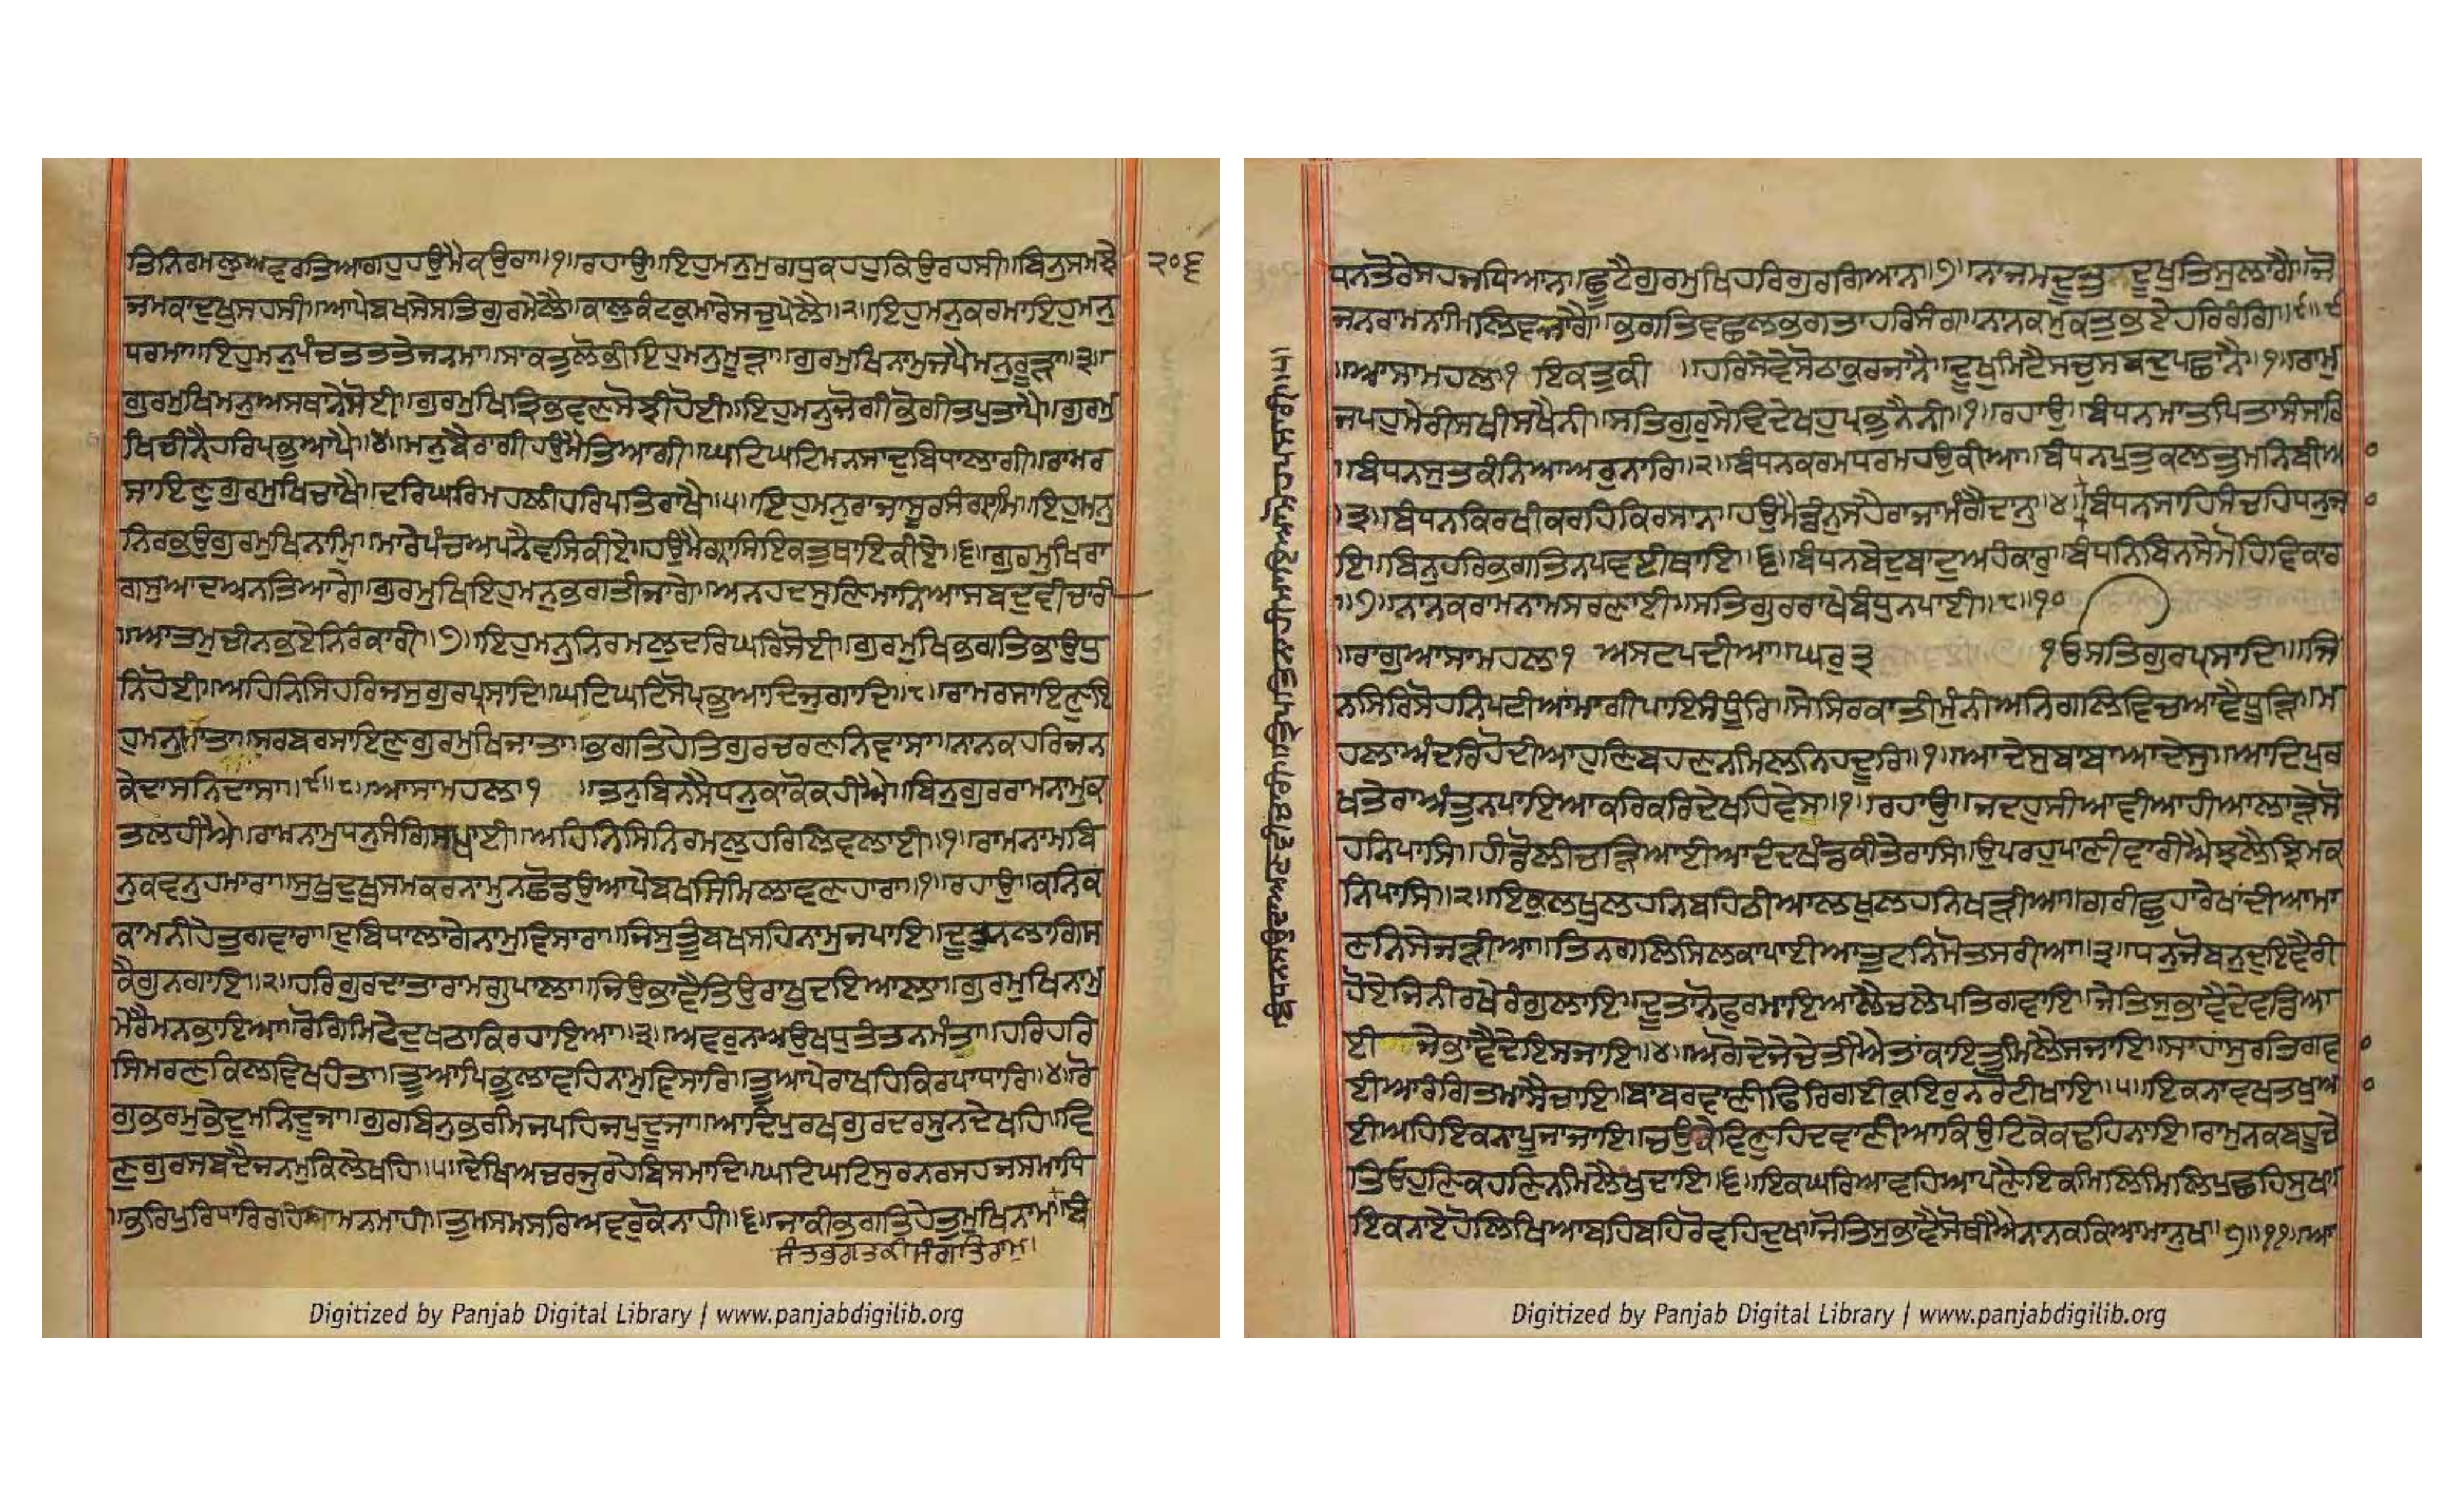 ਤਿਨਿਰਮਲੁਅਵਰਤਿਆਗਹੁਹਉਮੈਕਉਰਾ॥੧॥ਰਹਾਉ॥ਇਹੁਮਨੁਮੂਰਾਪੁਕਹਹੁਕਿਉਰਹਸੀ॥ਬਿਨੁਸਮਝੇ
੨੦੬
ਜਮਕਾਦੁਖੁਸਹਸੀ॥ਆਪੇਬਖਸੇਸਤਿਗੁਰਮੇਲੈ॥ਕਾਲੁਕੰਟਕੁਮਾਰੇਸਚੁਪੇਲੈ॥੨॥ਇਹੁਮਨੁਕਰਮਾਇਹੁਮਨੁ
ਧਰਮਾ॥ਇਹੁਮਨੁਪੰਚਤਤਤੇਜਨਮਾ॥ਸਾਕਤੁਲੋਭੀਇਹੁਮਨੁਮੂੜਾ॥ਗੁਰਮੁਖਿਨਾਮੁਜਪੈਮਨੁਰੂੜਾ॥੩॥
ਗੁਰਮੁਖਿਮਨੁਅਸਥਾਨੇਸੋਈ॥ਗੁਰਮੁਖਿਤ੍ਰਿਭਵਣਸੋਝੀਹੋਈ॥ਇਹੁਮਨੁਜੋਗੀਭੋਗੀਤਪੁਤਾਪੈ॥ਗੁਰਮੁ
ਖਿਚੀਨੈਹਰਿਪ੍ਰਭੁਆਪੈ॥੪॥ਮਨੁਬੈਰਾਗੀਹਉਮੈਤਿਆਗੀ॥ਘਟਿਘਟਿਮਨਸਾਦੁਬਿਧਾਲਾਗੀ॥ਰਾਮਰ
ਸਾਇਣੁਗੁਰਮੁਖਿਚਾਖੈ॥ਦਰਿਘਰਿਮਹਲੀਹਰਿਪਤਿਰਾਖੈ॥੫॥ਇਹੁਮਨੁਰਾਜਾਸੂਰਸੰਗ੍ਰਾਮਿ॥ਇਹੁਮਨੁ
ਨਿਰਭਉਗੁਰਮੁਖਿਨਾਮਿ॥ਮਾਰੇਪੰਚਅਪਨੈਵਸਿਕੀਏ॥ਹਉਮੈਗ੍ਰਾਸਿਇਕਤੁਥਾਇਕੀਏ॥੬॥ਗੁਰਮੁਖਿਰਾ
ਗਸੁਆਦਅਨਤਿਆਗੇ॥ਗੁਰਮੁਖਿਇਹੁਮਨੁਭਗਤੀਜਾਗੇ॥ਅਨਹਦਸੁਣਿਮਾਨਿਆਸਬਦੁਵੀਚਾਰੀ
॥ਆਤਮੁਚੀਨਭਏਨਿਰੰਕਾਰੀ॥੭॥ਇਹੁਮਨੁਨਿਰਮਲੁਦਰਿਘਰਿਸੋਈ॥ਗੁਰਮੁਖਿਭਗਤਿਭਾਉਧੁ
ਨਿਹੋਈ॥ਅਹਿਨਿਸਿਹਰਿਜਸੁਗੁਰਪ੍ਰਸਾਦਿ॥ਘਟਿਘਟਿਸੋਪ੍ਰਭੁਆਦਿਜੁਗਾਦਿ॥੮॥ਰਾਮਰਸਾਇਣਿਇ
ਹੁਮਨੁਮਾਤਾ॥ਸਰਬਰਸਾਇਣੁਗੁਰਮੁਖਿਜਾਤਾ॥ਭਗਤਿਹੇਤਿਗੁਰਚਰਣਨਿਵਾਸਾ॥ਨਾਨਕਹਰਿਜਨ
ਕੇਦਾਸਨਿਦਾਸਾ॥੯॥੮॥ਆਸਾਮਹਲਾ੧ ॥ਤਨੁਬਿਨਸੈਧਨੁਕਾਕੋਕਹੀਐ॥ਬਿਨੁਗੁਰਰਾਮਨਾਮੁਕ
ਤਲਹੀਐ॥ਰਾਮਨਾਮੁਧਨੁਸੰਗਿਸਖਾਈ॥ਅਹਿਨਿਸਿਨਿਰਮਲੁਹਰਿਲਿਵਲਾਈ॥੧॥ਰਾਮਨਾਮਬਿ
ਨੁਕਵਨੁਹਮਾਰਾ॥ਸੁਖੁਦੁਖੁਸਮਕਰਨਾਮੁਨਛੋਡਉਆਪੇਬਖਸਿਮਿਲਾਵਣਹਾਰਾ॥੧॥ਰਹਾਉ॥ਕਨਿਕ
ਕਾਮਨੀਹੇਤੁਗਵਾਰਾ॥ਦੁਬਿਧਾਲਾਗੇਨਾਮੁਵਿਸਾਰਾ॥ਜਿਸੁਤੂੰਬਖਸਹਿਨਾਮੁਜਪਾਇ॥ਦੂਤੁਨਲਾਗਿਸ
ਕੈਗੁਨਗਾਇ॥੨॥ਹਰਿਗੁਰਦਾਤਾਰਾਮਗੁਪਾਲਾ॥ਜਿਉਭਾਵੈਤਿਉਰਾਖੁਦਇਆਲਾ॥ਗੁਰਮੁਖਿਨਾਮੁ
ਮੇਰੈਮਨਭਾਇਆ॥ਰੋਗਮਿਟੇਦੁਖਠਾਕਿਰਹਾਇਆ॥੩॥ਅਵਰੁਨਅਉਖਧੁਤੰਤਨਮੰਤਾ॥ਹਰਿਹਰਿ
ਸਿਮਰਣਕਿਲਵਿਖਹੰਤਾ॥ਤੂਆਪਿਭੁਲਾਵਹਿਨਾਮੁਵਿਸਾਰਿ॥ਤੂਆਪੇਰਾਖਹਿਕਿਰਪਾਧਾਰਿ॥੪॥ਰੋ
ਗੁਭਰਮੁਭੇਦੁਮਨਿਦੂਜਾ॥ਗੁਰਬਿਨੁਭਰਮਿਜਪਹਿਜਪੁਦੂਜਾ॥ਆਦਿਪੁਰਖਗੁਰਦਰਸੁਨਦੇਖਹਿ॥ਵਿ
ਣੁਗੁਰਸਬਦੈਜਨਮੁਕਿਲੇਖਹਿ॥੫॥ਦੇਖਿਅਚਰਜੁਰਹੇਬਿਸਮਾਦਿ॥ਘਟਿਘਟਿਸੁਰਨਰਸਹਜਸਮਾਧਿ
॥ਭਰਿਪੁਰਿਧਾਰਿਰਹੇਮਨਮਾਹੀ॥ਤੁਮਸਮਸਰਿਅਵਰੁਕੋਨਾਹੀ॥੬॥ਜਾਕੀਭਗਤਿਹੇਤੁਮੁਖਿਨਾਮ॥
ਸੰਤਭਗਤਕੀਸੰਗਤਿਰਾਮੁ॥
Digitized by Panjab Digital Library | www.panjabdigilib.org
ਬੰਧਨਤੋਰੇਸਹਜਿਧਿਆਨੁ॥
ਧਨਤੋਰੇਸਹਜਧਿਆਨਾ॥ਛੂਟੈਗੁਰਮੁਖਿਹਰਿਗੁਰਗਿਆਨਾ॥੭॥ਨਾਜਮਦੂਤ ਦੂਖੁਤਿਸੁਲਾਗੈ॥ਜੋ
ਜਨਰਾਮਨਾਮਿਲਿਵਜਾਗੈ॥ਭਗਤਿਵਛਲੁਭਗਤਾਹਰਿਸੰਗ॥ਨਾਨਕਮੁਕਤੁਭਏਹਰਿਰੰਗਿ॥੮॥੯
॥ਆਸਾਮਹਲਾ੧ ਇਕਤੁਕੀ ॥ਹਰਿਸੇਵੇਸੋਠਾਕੁਰਜਾਨੈ॥ਦੂਖੁਮਿਟੈਸਚੁਸਬਦੁਪਛਾਨੈ॥੧॥ਰਾਮੁ
ਜਪਹੁਮੇਰੀਸਖੀਸਖੈਨੀ॥ਸਤਿਗੁਰੁਸੇਵਿਦੇਖਹੁਪ੍ਰਭੁਨੈਨੀ॥੧॥ਰਹਾਉ॥ਬੰਧਨਮਾਤਪਿਤਾਸੰਸਾਰਿ
॥ਬੰਧਨਸੁਤਕੰਨਿਆਅਰੁਨਾਰਿ॥੨॥ਬੰਧਨਕਰਮਧਰਮਹਉਕੀਆ॥ਬੰਧਨਪੁਤੁਕਲਤੁਮਨਿਬੀਆ
॥੩॥ਬੰਧਨਕਿਰਖੀਕਰਹਿਕਿਰਸਾਨ॥ਹਉਮੈਡੰਨੁਸਹੈਰਾਜਾਮੰਗੈਦਾਨੁ॥੪॥ਬੰਧਨਸਾਹਿਸੰਚਹਿਧਨੁਜ
ਇ॥ਬਿਨੁਹਰਿਭਗਤਿਨਪਵਈਥਾਇ॥੬॥ਬੰਧਨਬੇਦੁਬਾਦੁਅਹੰਕਾਰੁ॥ਬੰਧਨਿਬਿਨਸੈਮੋਹਿਵਿਕਾਰ
॥੭॥ਨਾਨਕਰਾਮਨਾਮਸਰਣਾਈ॥ਸਤਿਗੁਰਰਾਖੇਬੰਧੁਨਪਾਈ॥੮॥੧੦
॥ਰਾਗੁਆਸਾਮਹਲਾ੧ ਅਸਟਪਦੀਆ॥ਘਰੁ੩ ੧ਓਸਤਿਗੁਰਪ੍ਰਸਾਦਿ॥ਜਿ
ਨਸਿਰਿਸੋਹਨਿਪਟੀਆਂਮਾਂਗੀਪਾਇਸੰਧੂਰਿ॥ਸੇਸਿਰਕਾਤੀਮੁੰਨੀਅਨਿਗਲਿਵਿਚਆਵੈਧੂੜਿ॥ਮ
ਹਲਾਅੰਦਰਿਹੋਦੀਆਹੁਣਿਬਹਣਨਮਿਲਨਿਹਦੂਰਿ॥੧॥ਆਦੇਸੁਬਾਬਾਆਦੇਸੁ॥ਆਦਿਪੁਰ
ਖਤੇਰਾਅੰਤੁਨਪਾਇਆਕਰਿਕਰਿਦੇਖਹਿਵੇਸ॥੧॥ਰਹਾਉ॥ਜਦਹੁਸੀਆਵੀਆਹੀਆਲਾੜੇਸੋ
ਹਨਿਪਾਸਿ॥ਹੀਡੋਲੀਚੜਿਆਈਆਦੰਦਖੰਡਕੀਤੇਰਾਸਿ॥ਉਪਰਹੁਪਾਣੀਵਾਰੀਐਝਲੈਝਿਮਕ
ਨਿਪਾਸਿ॥੨॥ਇਕੁਲਖੁਲਹਨਿਬਹਿਠੀਆਲਖੁਲਹਨਿਖੜੀਆ॥ਗਰੀਛੁਹਾਰੇਖਾਂਦੀਆਮਾ
ਣਨਿਸੇਜੜੀਆ॥ਤਿਨਗਲਿਸਿਲਕਾਪਾਈਆਤੁਟਨਿਮੋਤਸਰੀਆ॥੩॥ਧਨੁਜੋਬਨੁਦੁਇਵੈਰੀ
ਹੋਏਜਿਨੀਰਖੇਰੰਗੁਲਾਇ॥ਦੂਤਾਨੋਫੁਰਮਾਇਆਲੈਚਲੇਪਤਿਗਵਾਇ॥ਜੇਤਿਸੁਭਾਵੈਦੇਵਡਿਆ
ਈ ਜੇਭਾਵੈਦੇਇਸਜਾਇ॥੪॥ਅਗੋਦੇਜੇਚੇਤੀਐਤਾਂਕਾਇਤੁਮਿਲੈਸਜਾਇ॥ਸਾਹਾਂਸੁਰਤਿਗਵ
ਈਆਰੰਗਿਤਮਾਸੈਚਾਇ॥ਬਾਬਰਵਾਣੀਫਿਰਿਗਈਕੁਇਰੁਨਰੋਟੀਖਾਇ॥੫॥ਇਕਨਾਵਖਤਖੁਆ
ਈਅਹਿਇਕਨਾਪੂਜਾਜਾਇ॥ਚਉਕੇਵਿਣੁਹਿਦਵਾਣੀਆਕਿਉਟਿਕੇਕਢਹਿਨਾਇ॥ਰਾਮੁਨਕਬਹੂਚੇ
ਤਿਓਹੁਣਿਕਹਣਿਨਮਿਲੈਖੁਦਾਇ॥੬॥ਇਕਘਰਿਆਵਹਿਆਪਣੈਇਕਮਿਲਿਮਿਲਿਪੁਛਹਿਸੁਖ॥
ਇਕਨਾਏਹੋਲਿਖਿਆਬਹਿਬਹਿਰੋਵਹਿਦੁਖ॥ਜੋਤਿਸੁਭਾਵੈਸੋਥੀਐਨਾਨਕਕਿਆਮਾਨੁਖ॥੭॥੧੧॥ਆ
Digitized by Panjab Digital Library | www.panjabdigilib.org